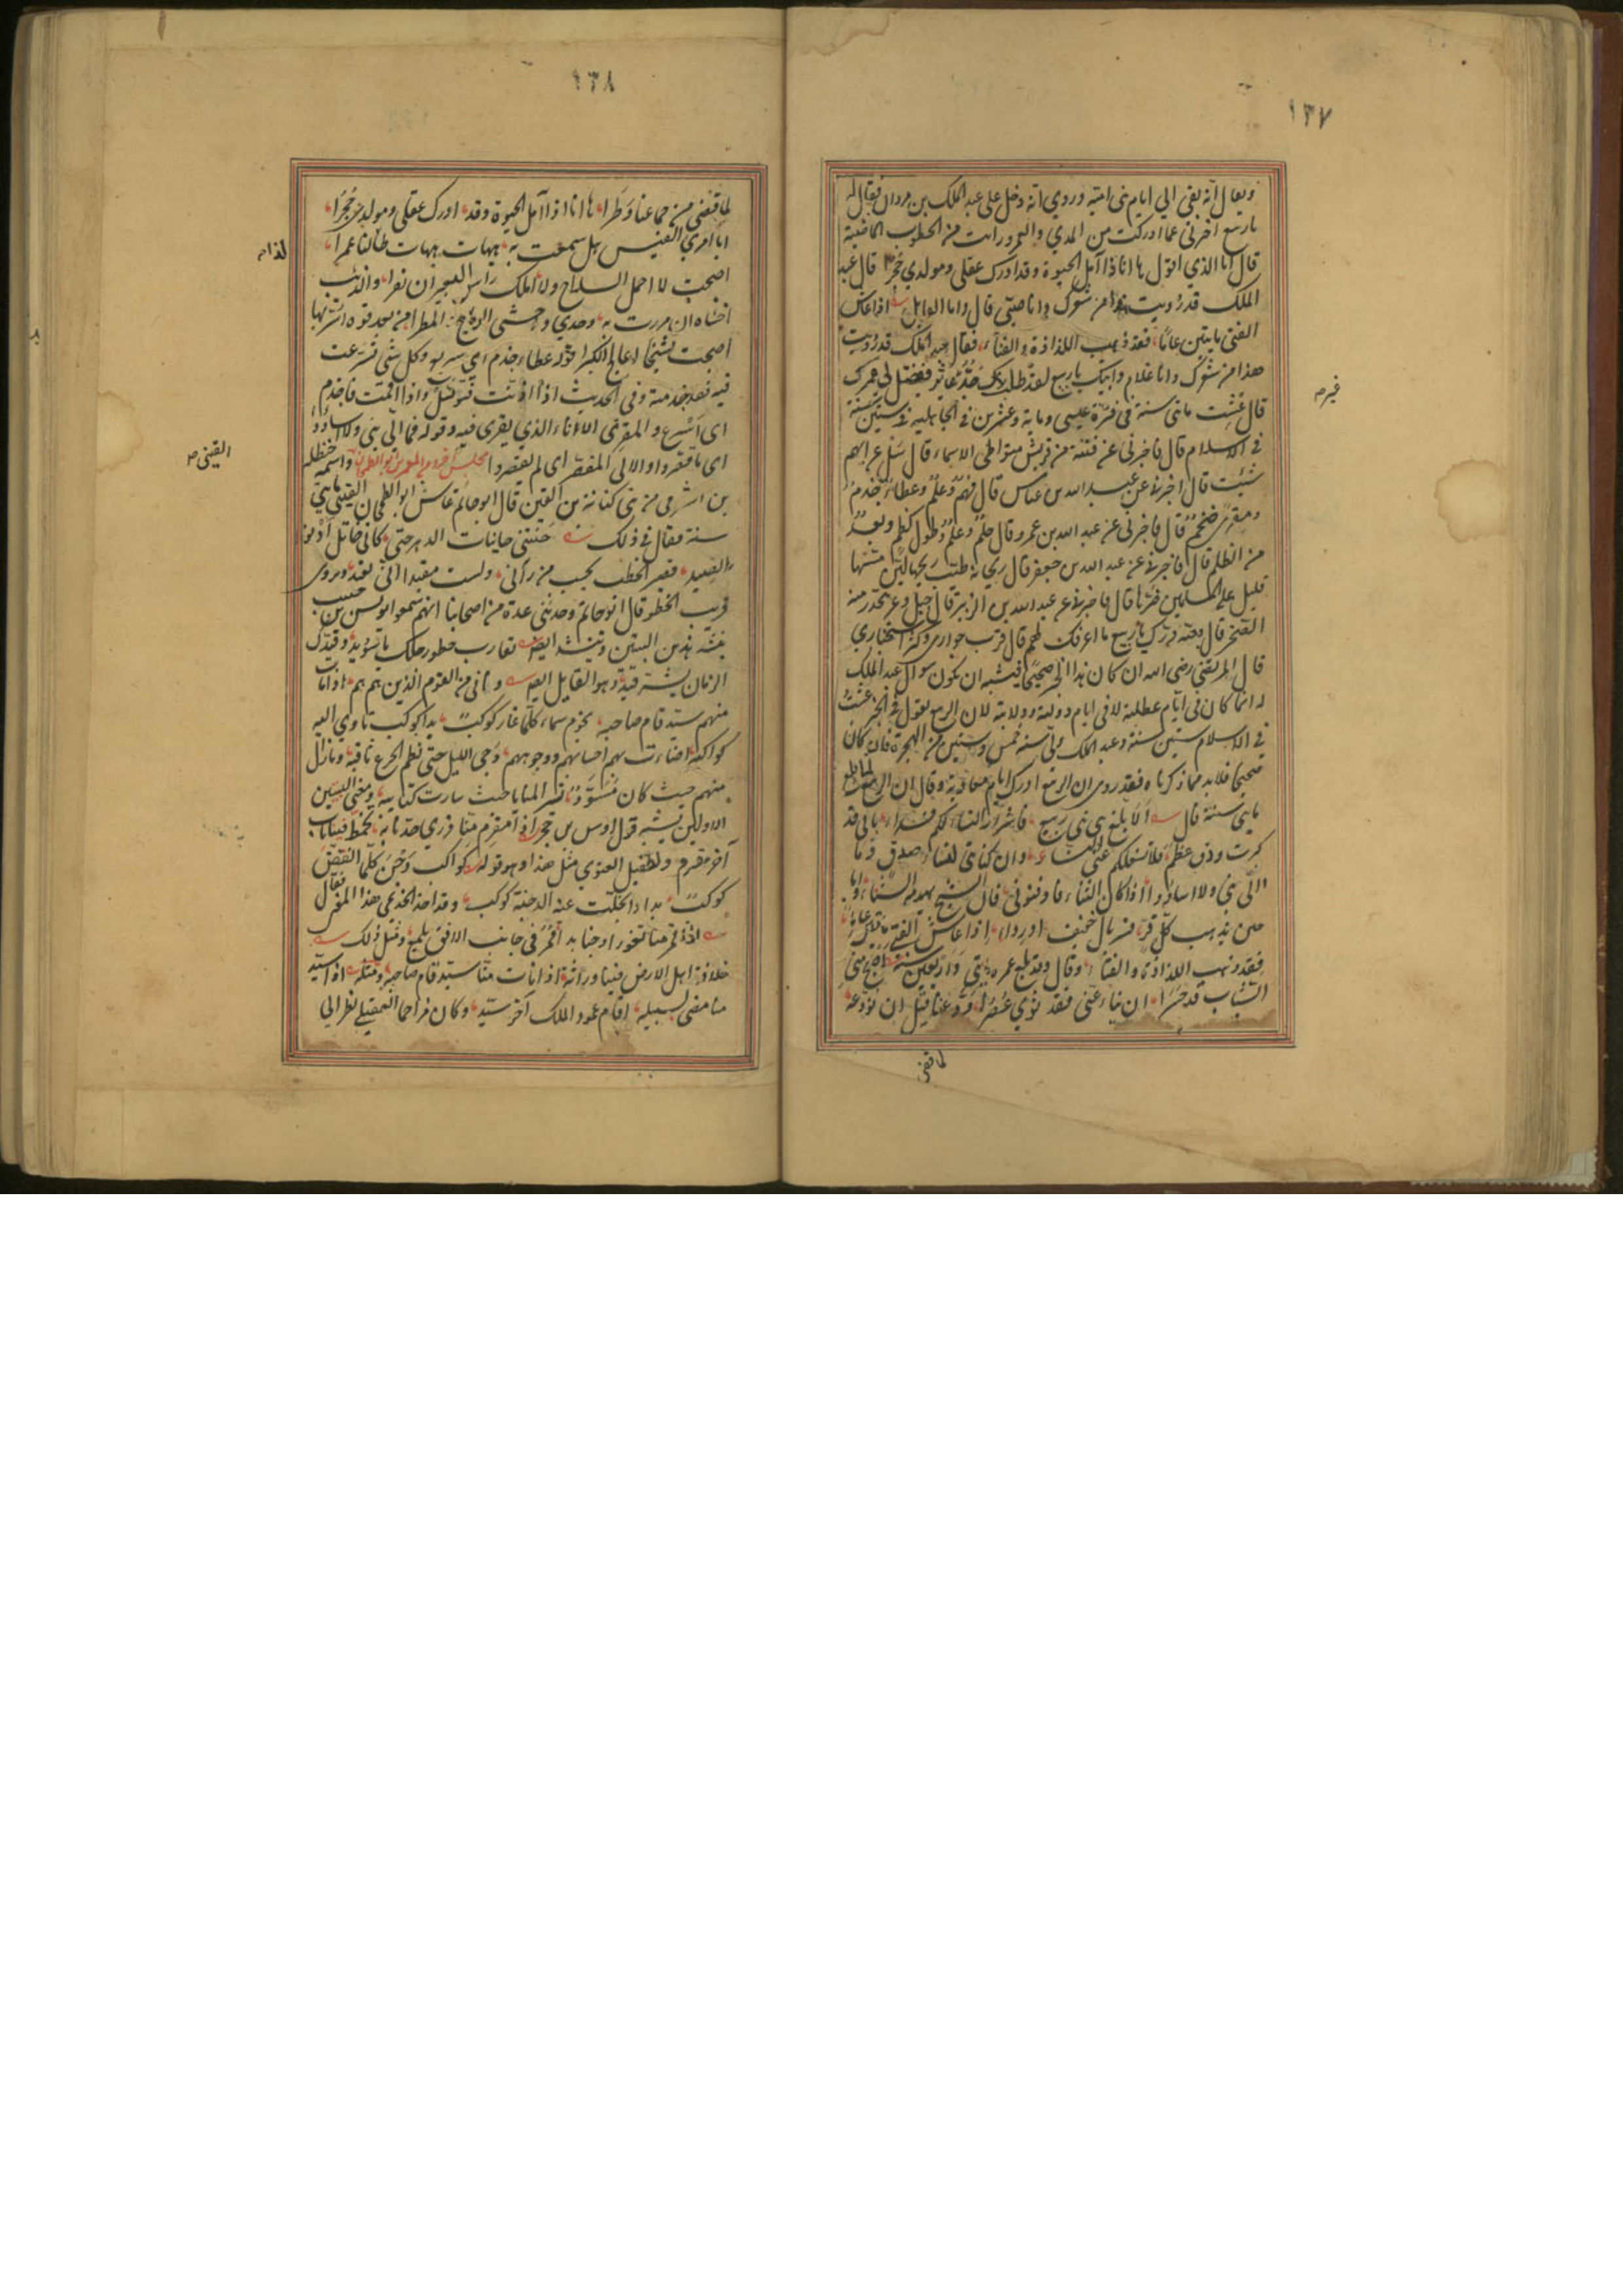 ١٣٧
ويقال انه بقي الي ايام بني امية وروي انه دخل علي عبد الملك بن مروان فقال له
يا ربيع اخبرني عما ادركت من المدي والعمر ورايت من الخطوب الماضية
قال انا الذي اقول ها انا ذا آمل الحيوة وقد ادرك عقلي ومولدي حُجرا قال عبد
الملك قد رويت هذا من شعرك وانا صبي قال وانا القايل اذا عاش
الفتي مايتين عامًا فقد ذهب اللذاذة والفتاء فقال عبد الملك قد رويت
هذا من شعرك وانا غلام وابيك يا ربيع لقد طلبك جَدٌّ غير عاثر ففصّل لي عمرك
قال عِشت مائتي سنة في فترة عيسي وماية وعشرين في الجاهلية وستين سنة
في الاسلام قال فاخبرني عن فتية من قريش متواطي الاسماء قال سَل عن ايهم
شئت قال اخبرني عن عبد الله بن عباس قال فَهمٌ وعِلمٌ وعطاءٌ جَذم
ومِقرًى ضخمٌ قال فاخبرني عن عبد الله بن عمر وقال حِلمٌ وعِلمٌ وطول كظم وبُعدٌ
من الظلم قال فاخبرني عن عبد الله بن جعفر قال ريحانة طيّب ريحها ليّن مسّها
قليل علي المسلمين ضرّها قال فاخبرني عن عبد الله بن الزبير قال جبل وعر ينحدر منه
الصخر قال لله درّك يا ربيع ما اعرفك بهم قال قرب جواري وكثر استخباري
قال المرتضي رضي الله ان كان هذا الخبر صحيحا فيشبه ان يكون سؤال عبد الملك
له انما كان في ايام معوية لا في ايام دولته وولايته لان الربيع يقول في الخبر عشتُ
في الاسلام ستين سنة وعبد الملك ولي سنة خمس وستين من الهجرة فان كان
صحيحا فلا بد مما ذكرناه فقد روي ان الربيع ادرك ايام معاوية وقال ان الربيع لما بلغ
مايتي سنة قال الا ابلغ بني بني ربيع فاشرار البنين لكم فداء باني قد
كبرت ودق عظمي فلا تشغلكم عني النساء وان كنايني لنساء صدق وما
الّي بني ولا اساؤوا اذا كان الشتاء فادفئوني فان الشيخ يهدمه الشتاء واما
حين يذهب كل قرّ فسربال خفيف او رداء اذا عاش الفتي مايتين عاماً
فقد ذهب اللذاذة والفتاء وقال وقد بلغ عمره مايتي واربعين سنة اصبح مني
الشباب قد حَسَرا ان ينأ عني فقد ثوي عُصُرا ودّعنا قبل ان نودّعه
لما قضي
١٣٨
لما قضي من جماعنا وَطَرا ها انا ذا آمل الحيوة وقد ادرك عقلي ومولدي حُجُرا
ابا امري القيس هل سمعت به هيهات هيهات طال ذا عمرا
لذا م
اصبحت لا احمل السلاح ولا املك راس البعير ان نفرا والذئب
اخشاه ان مررت به وحدي واخشي الرياح والمطرا من بعد قوة اسرّ بها
اصبحت شيخا اعالج الكبرا قوله عطاء جذم اي سريع وكل شي تسرعت
فيه فقد جذمته وفي الحديث اذا اذنت فترسّل واذا اقمت فاجذم
اي اسرع والمقري الاناء الذي يقري فيه وقوله فما الّي بني ولا اساؤا
اي ما قصروا والالي المقصر اي لم يقصروا مجلس آخر ومن المعمرين ابو الطمحان واسمه حنظلة
القيني م
بن الشرقي من بني كنانة بن القين قال ابو حاتم عاش ابو الطمحان القيني مايتي
سنة فقال في ذلك حنتني حانيات الدهر حتي كاني خاتل ادنو
لصيد قصير الخطب يحسب من رآني ولست مقيدا اني بقيد ويروي
قريب الخطو قال ابو حاتم وحدثني عدة من اصحابنا انهم سمعوا يونس بن حبيب
ينشد هذين البيتين وينشد ايضا تقارب خطو رجلك يا سويد وقيدك
الزمان بشرّ قيد وهو القايل ايضا واني من القوم الذين هم هم اذا مات
منهم سيد قام صاحبه نجوم سماء كلما غار كوكبٌ بدا كوكب تاوي اليه
كواكبه اضاءت لهم احسابهم ووجوههم دجي الليل حتي نظم الجزع ثاقبه وما زال
منهم حيث كان مُسَوّدٌ تسير المنايا حيث سارت كتايبه ومعني البيتين
الاولين يشبه قول اوس بن حجر اذا مقرم منا ذري حد نابه تخمّط فينا ناب
آخر مقرم ولطفيل الغنوي مثل هذا وهو قوله كواكب دَجن كلما انقض
كوكبٌ بدا وانجلت عنه الدجنة كوكب وقد اخذ الخزيمي هذا المعني فقال
اذا قمر منا تغور او خبا بدا قمر في جانب الافق يلمع ومثل ذلك
خلافة اهل الارض فينا وراثة اذا مات منا سيد قام صاحبه ومثله اذا سيد
منا مضي لسبيله اقام عمود الملك آخر سيّد وكان مزاحما العقيلي نظر الي
غير م